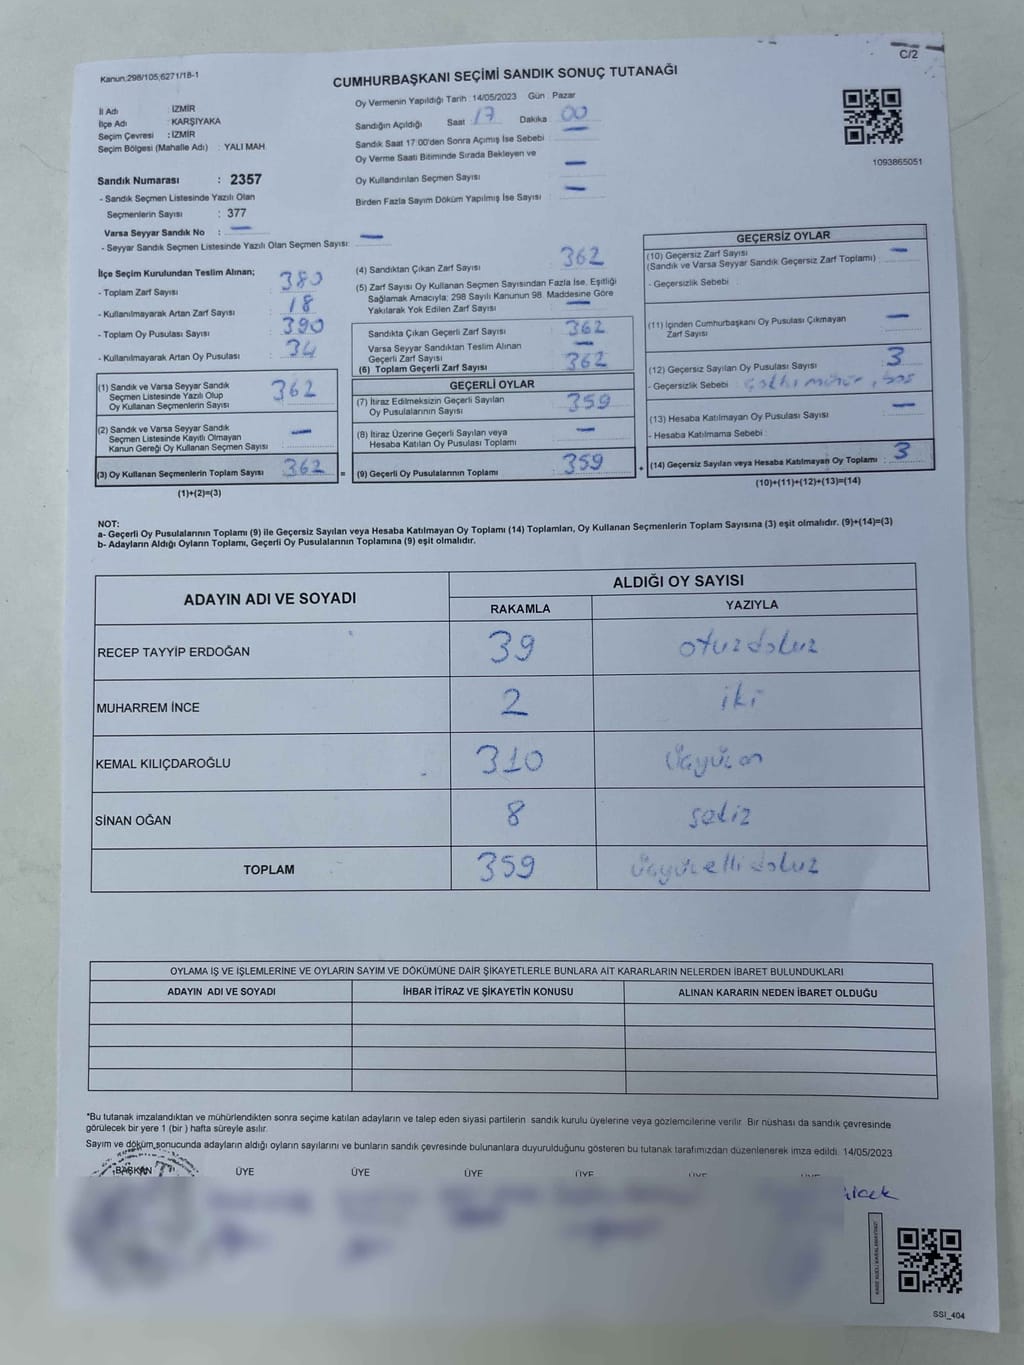 C/2
Kanun:298/105,6271/18-1
CUMHURBAŞKANI SEÇİMİ SANDIK SONUÇ TUTANAĞI
Oy Vermenin Yapıldığı Tarih :14/05/2023 Gün : Pazar
İl Adı : İZMİR
İlçe Adı : KARŞIYAKA
Seçim Çevresi : İZMİR
Seçim Bölgesi (Mahalle Adı) : YALI MAH
Sandığın Açıldığı Saat : 17 Dakika : 00
Sandık Saat 17:00'den Sonra Açımış İse Sebebi : —
Oy Verme Saati Bitiminde Sırada Bekleyen ve
Oy Kullandırılan Seçmen Sayısı : —
Birden Fazla Sayım Döküm Yapılmış İse Sayısı : —
1093865051
Sandık Numarası : 2357
- Sandık Seçmen Listesinde Yazılı Olan
Seçmenlerin Sayısı : 377
Varsa Seyyar Sandık No : —
- Seyyar Sandık Seçmen Listesinde Yazılı Olan Seçmen Sayısı: —
İlçe Seçim Kurulundan Teslim Alınan;
- Toplam Zarf Sayısı : 380
- Kullanılmayarak Artan Zarf Sayısı : 18
- Toplam Oy Pusulası Sayısı : 390
- Kullanılmayarak Artan Oy Pusulası : 34
(1) Sandık ve Varsa Seyyar Sandık
Seçmen Listesinde Yazılı Olup
Oy Kullanan Seçmenlerin Sayısı : 362
(2) Sandık ve Varsa Seyyar Sandık
Seçmen Listesinde Kayıtlı Olmayan
Kanun Gereği Oy Kullanan Seçmen Sayısı : —
(3) Oy Kullanan Seçmenlerin Toplam Sayısı : 362 =
(1)+(2)=(3)
(4) Sandıktan Çıkan Zarf Sayısı : 362
(5) Zarf Sayısı Oy Kullanan Seçmen Sayısından Fazla İse, Eşitliği
Sağlamak Amacıyla; 298 Sayılı Kanunun 98. Maddesine Göre
Yakılarak Yok Edilen Zarf Sayısı : —
Sandıkta Çıkan Geçerli Zarf Sayısı : 362
Varsa Seyyar Sandıktan Teslim Alınan
Geçerli Zarf Sayısı : —
(6) Toplam Geçerli Zarf Sayısı : 362
GEÇERLİ OYLAR
(7) İtiraz Edilmeksizin Geçerli Sayılan
Oy Pusulalarının Sayısı : 359
(8) İtiraz Üzerine Geçerli Sayılan veya
Hesaba Katılan Oy Pusulası Toplamı : —
(9) Geçerli Oy Pusulalarının Toplamı : 359 +
GEÇERSİZ OYLAR
(10) Geçersiz Zarf Sayısı
(Sandık ve Varsa Seyyar Sandık Geçersiz Zarf Toplamı) : —
- Geçersizlik Sebebi :
(11) İçinden Cumhurbaşkanı Oy Pusulası Çıkmayan
Zarf Sayısı : —
(12) Geçersiz Sayılan Oy Pusulası Sayısı : 3
- Geçersizlik Sebebi : mühür, boş
(13) Hesaba Katılmayan Oy Pusulası Sayısı : —
- Hesaba Katılmama Sebebi :
(14) Geçersiz Sayılan veya Hesaba Katılmayan Oy Toplamı : 3
(10)+(11)+(12)+(13)=(14)
NOT:
a- Geçerli Oy Pusulalarının Toplamı (9) ile Geçersiz Sayılan veya Hesaba Katılmayan Oy Toplamı (14) Toplamları, Oy Kullanan Seçmenlerin Toplam Sayısına (3) eşit olmalıdır. (9)+(14)=(3)
b- Adayların Aldığı Oyların Toplamı, Geçerli Oy Pusulalarının Toplamına (9) eşit olmalıdır.
ADAYIN ADI VE SOYADI ALDIĞI OY SAYISI
RAKAMLA YAZIYLA
RECEP TAYYİP ERDOĞAN 39 otuzdokuz
MUHARREM İNCE 2 iki
KEMAL KILIÇDAROĞLU 310 üçyüzon
SİNAN OĞAN 8 sekiz
TOPLAM 359 üçyüzellidokuz
OYLAMA İŞ VE İŞLEMLERİNE VE OYLARIN SAYIM VE DÖKÜMÜNE DAİR ŞİKAYETLERLE BUNLARA AİT KARARLARIN NELERDEN İBARET BULUNDUKLARI
ADAYIN ADI VE SOYADI İHBAR İTİRAZ VE ŞİKAYETİN KONUSU ALINAN KARARIN NEDEN İBARET OLDUĞU
*Bu tutanak imzalandıktan ve mühürlendikten sonra seçime katılan adayların ve talep eden siyasi partilerin sandık kurulu üyelerine veya gözlemcilerine verilir. Bir nüshası da sandık çevresinde
görülecek bir yere 1 (bir ) hafta süreyle asılır.
Sayım ve döküm sonucunda adayların aldığı oyların sayılarını ve bunların sandık çevresinde bulunanlara duyurulduğunu gösteren bu tutanak tarafımızdan düzenlenerek imza edildi. 14/05/2023
BAŞKAN ÜYE ÜYE ÜYE ÜYE ÜYE
SSI_404